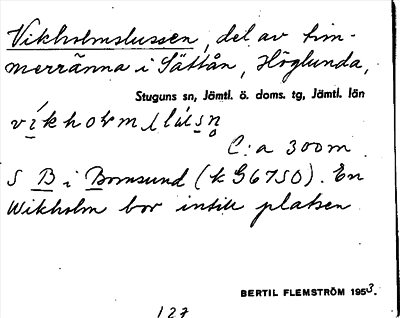 Vikholmslussen, del av tim-
merränna i Sättån, Höglunda,
Stuguns sn, Jämtl. ö. doms. tg, Jämtl. län
C:a 300 m
S B i Bomsund (k G6750). En
Wikholm bor intill platsen
BERTIL FLEMSTRÖM 1953.
127